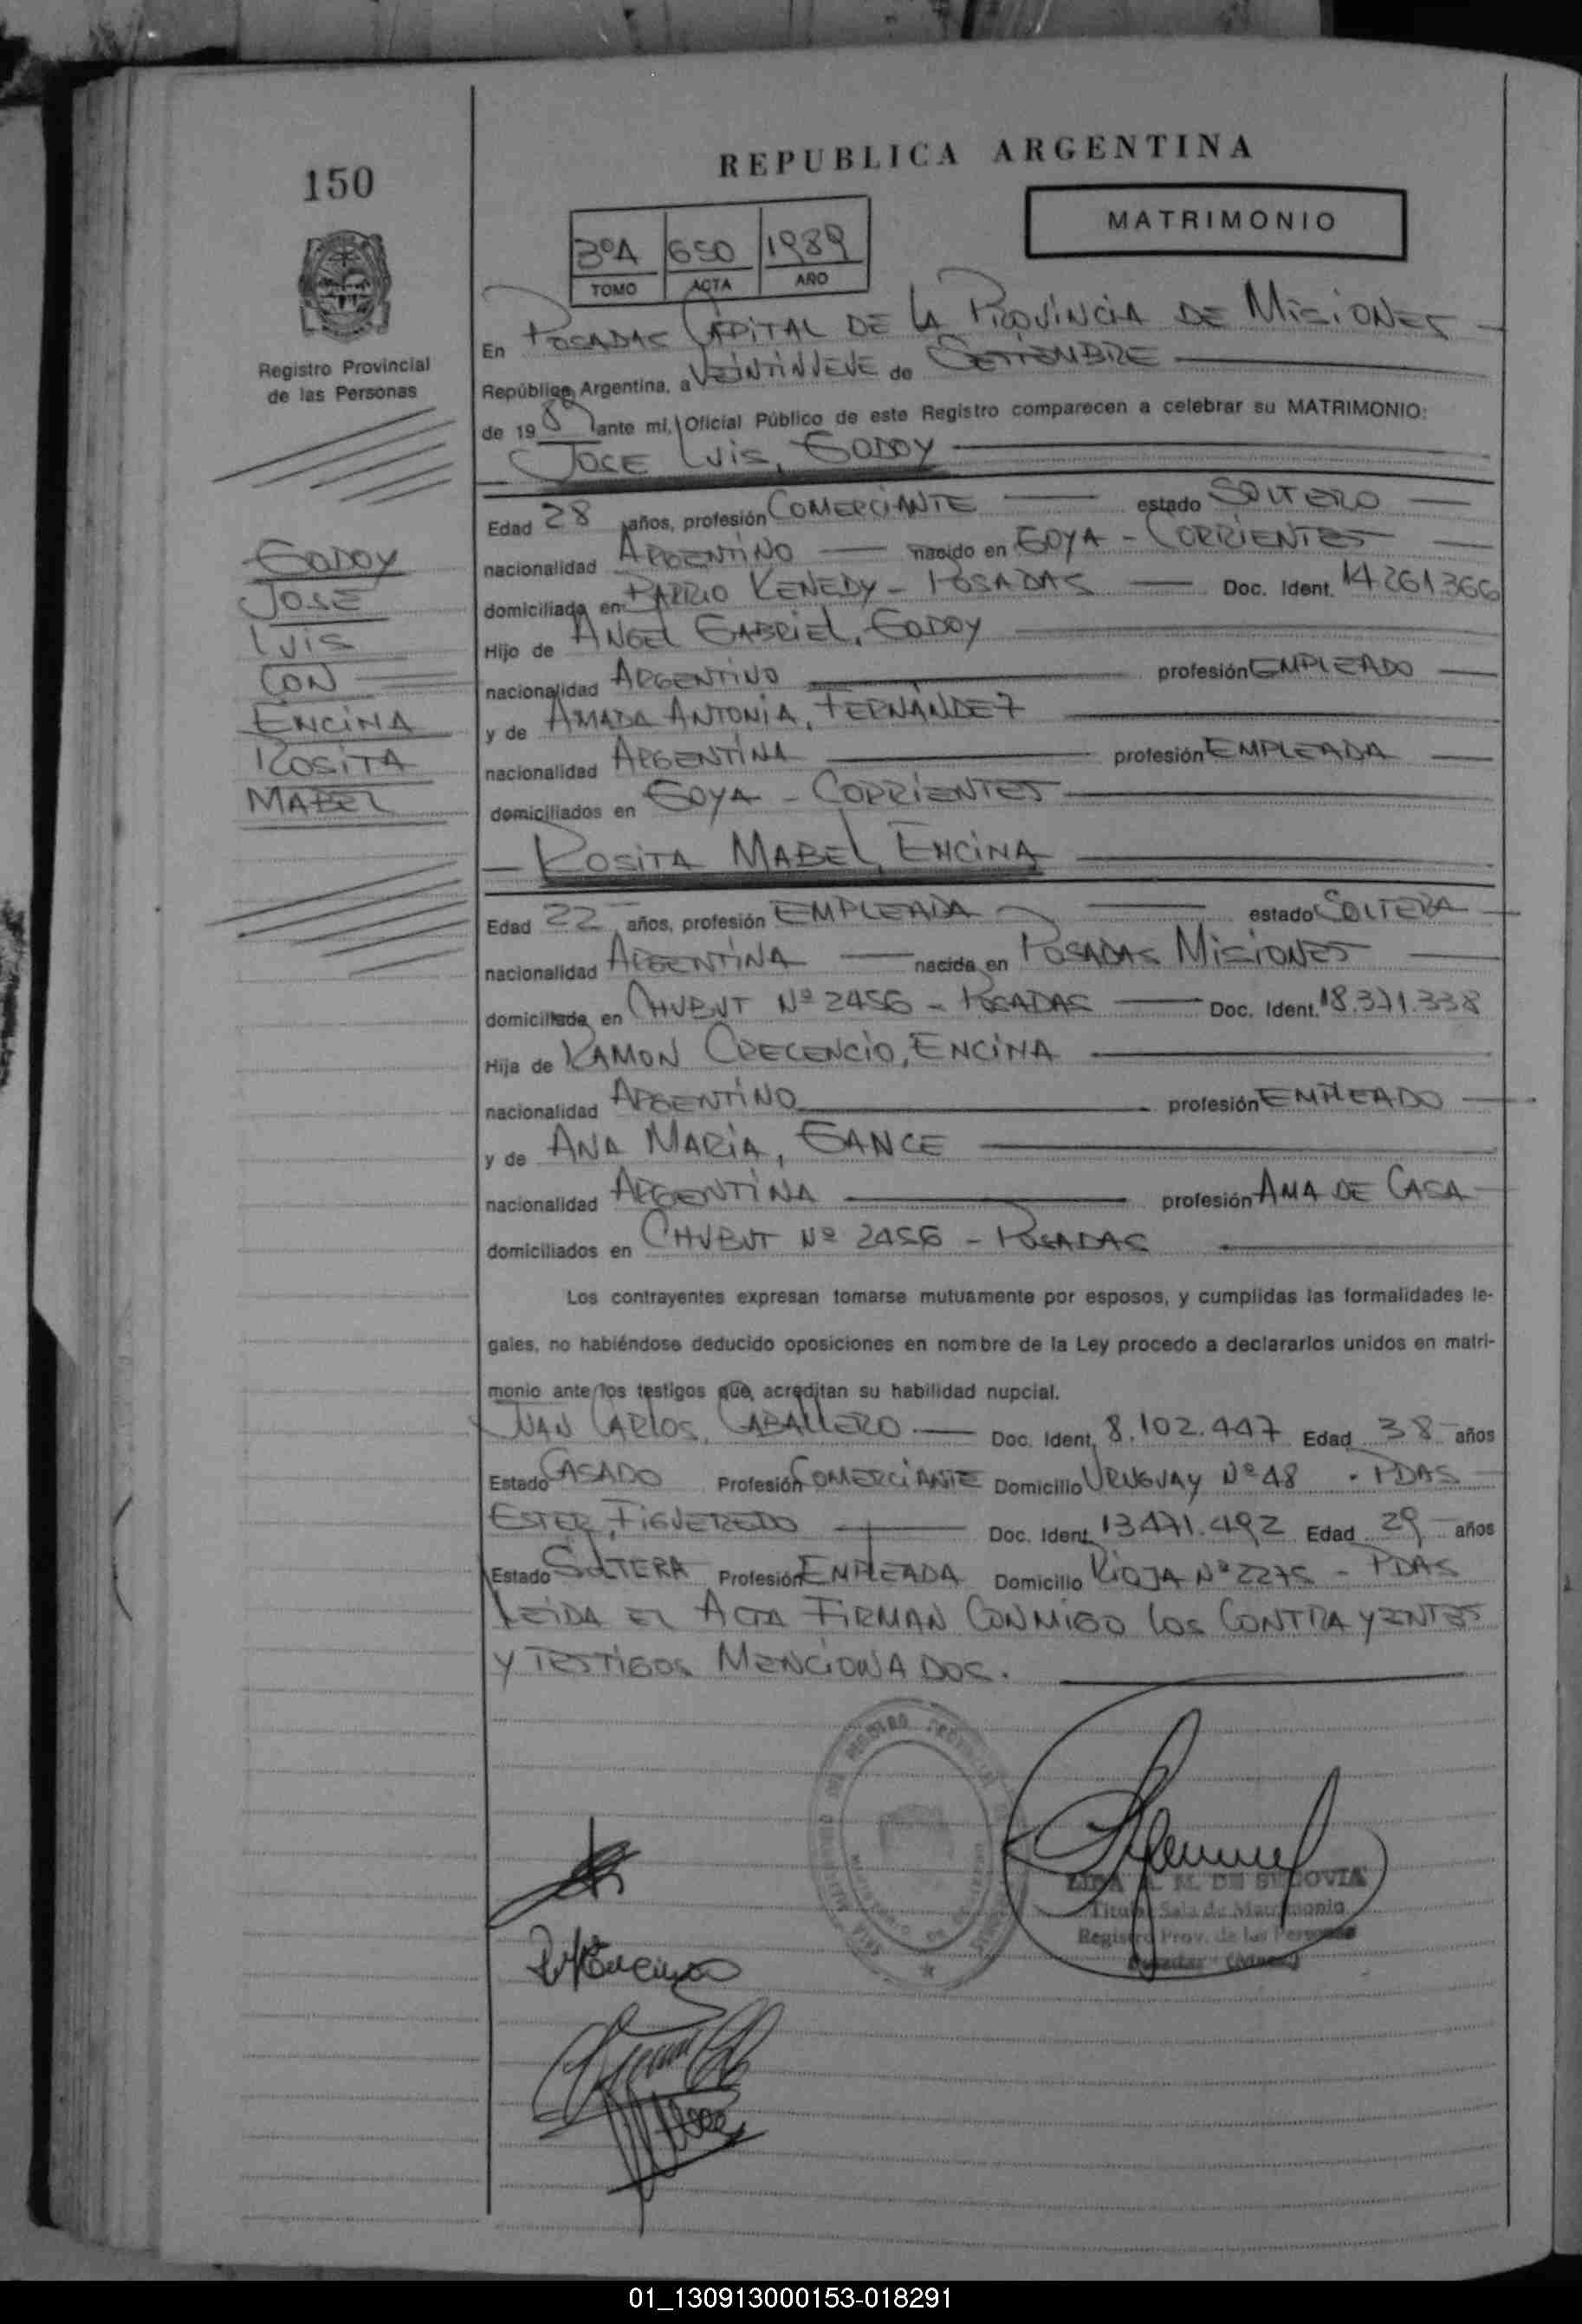 150
REPUBLICA ARGENTINA
MATRIMONIO
3ºA 650 1989
TOMO ACTA AÑO
Registro Provincial
de las Personas
En POSADAS CAPITAL DE LA PROVINCIA DE MISIONES
República Argentina, a VEINTINUEVE de SETIEMBRE
de 1989 ante mí, Oficial Público de este Registro comparecen a celebrar su MATRIMONIO:
JOSE LUIS, GODOY
Edad 28 años, profesión COMERCIANTE estado SOLTERO
nacionalidad ARGENTINO nacido en GOYA - CORRIENTES
domiciliado en BARRIO KENEDY - POSADAS Doc. Ident. 14.261.366
Hijo de ANGEL GABRIEL, GODOY
nacionalidad ARGENTINO profesión EMPLEADO
y de AMADA ANTONIA, FERNANDEZ
nacionalidad ARGENTINA profesión EMPLEADA
domiciliados en GOYA - CORRIENTES
GODOY
JOSE
LUIS
CON
ENCINA
ROSITA
MABEL
ROSITA MABEL, ENCINA
Edad 22 años, profesión EMPLEADA estado SOLTERA
nacionalidad ARGENTINA nacida en POSADAS MISIONES
domiciliada en CHUBUT Nº 2456 - POSADAS Doc. Ident. 18.371.338
Hija de RAMON CRECENCIO, ENCINA
nacionalidad ARGENTINO profesión EMPLEADO
y de ANA MARIA, GANCE
nacionalidad ARGENTINA profesión AMA DE CASA
domiciliados en CHUBUT Nº 2456 - POSADAS
Los contrayentes expresan tomarse mutuamente por esposos, y cumplidas las formalidades le-
gales, no habiéndose deducido oposiciones en nombre de la Ley procedo a declararlos unidos en matri-
monio ante los testigos que acreditan su habilidad nupcial.
JUAN CARLOS, CABALLERO Doc. Ident. 8.102.447 Edad 38 años
Estado CASADO Profesión COMERCIANTE Domicilio URUGUAY Nº 48 - PDAS
ESTER, FIGUEREDO Doc. Ident. 13.471.492 Edad 29 años
Estado SOLTERA Profesión EMPLEADA Domicilio RIOJA Nº 2275 - PDAS
LEIDA EL ACTA FIRMAN CONMIGO LOS CONTRAYENTES
Y TESTIGOS MENCIONADOS.
M. DE SEGOVIA
Titular Sala de Matrimonio
Registro Prov. de las Personas
01_130913000153-018291